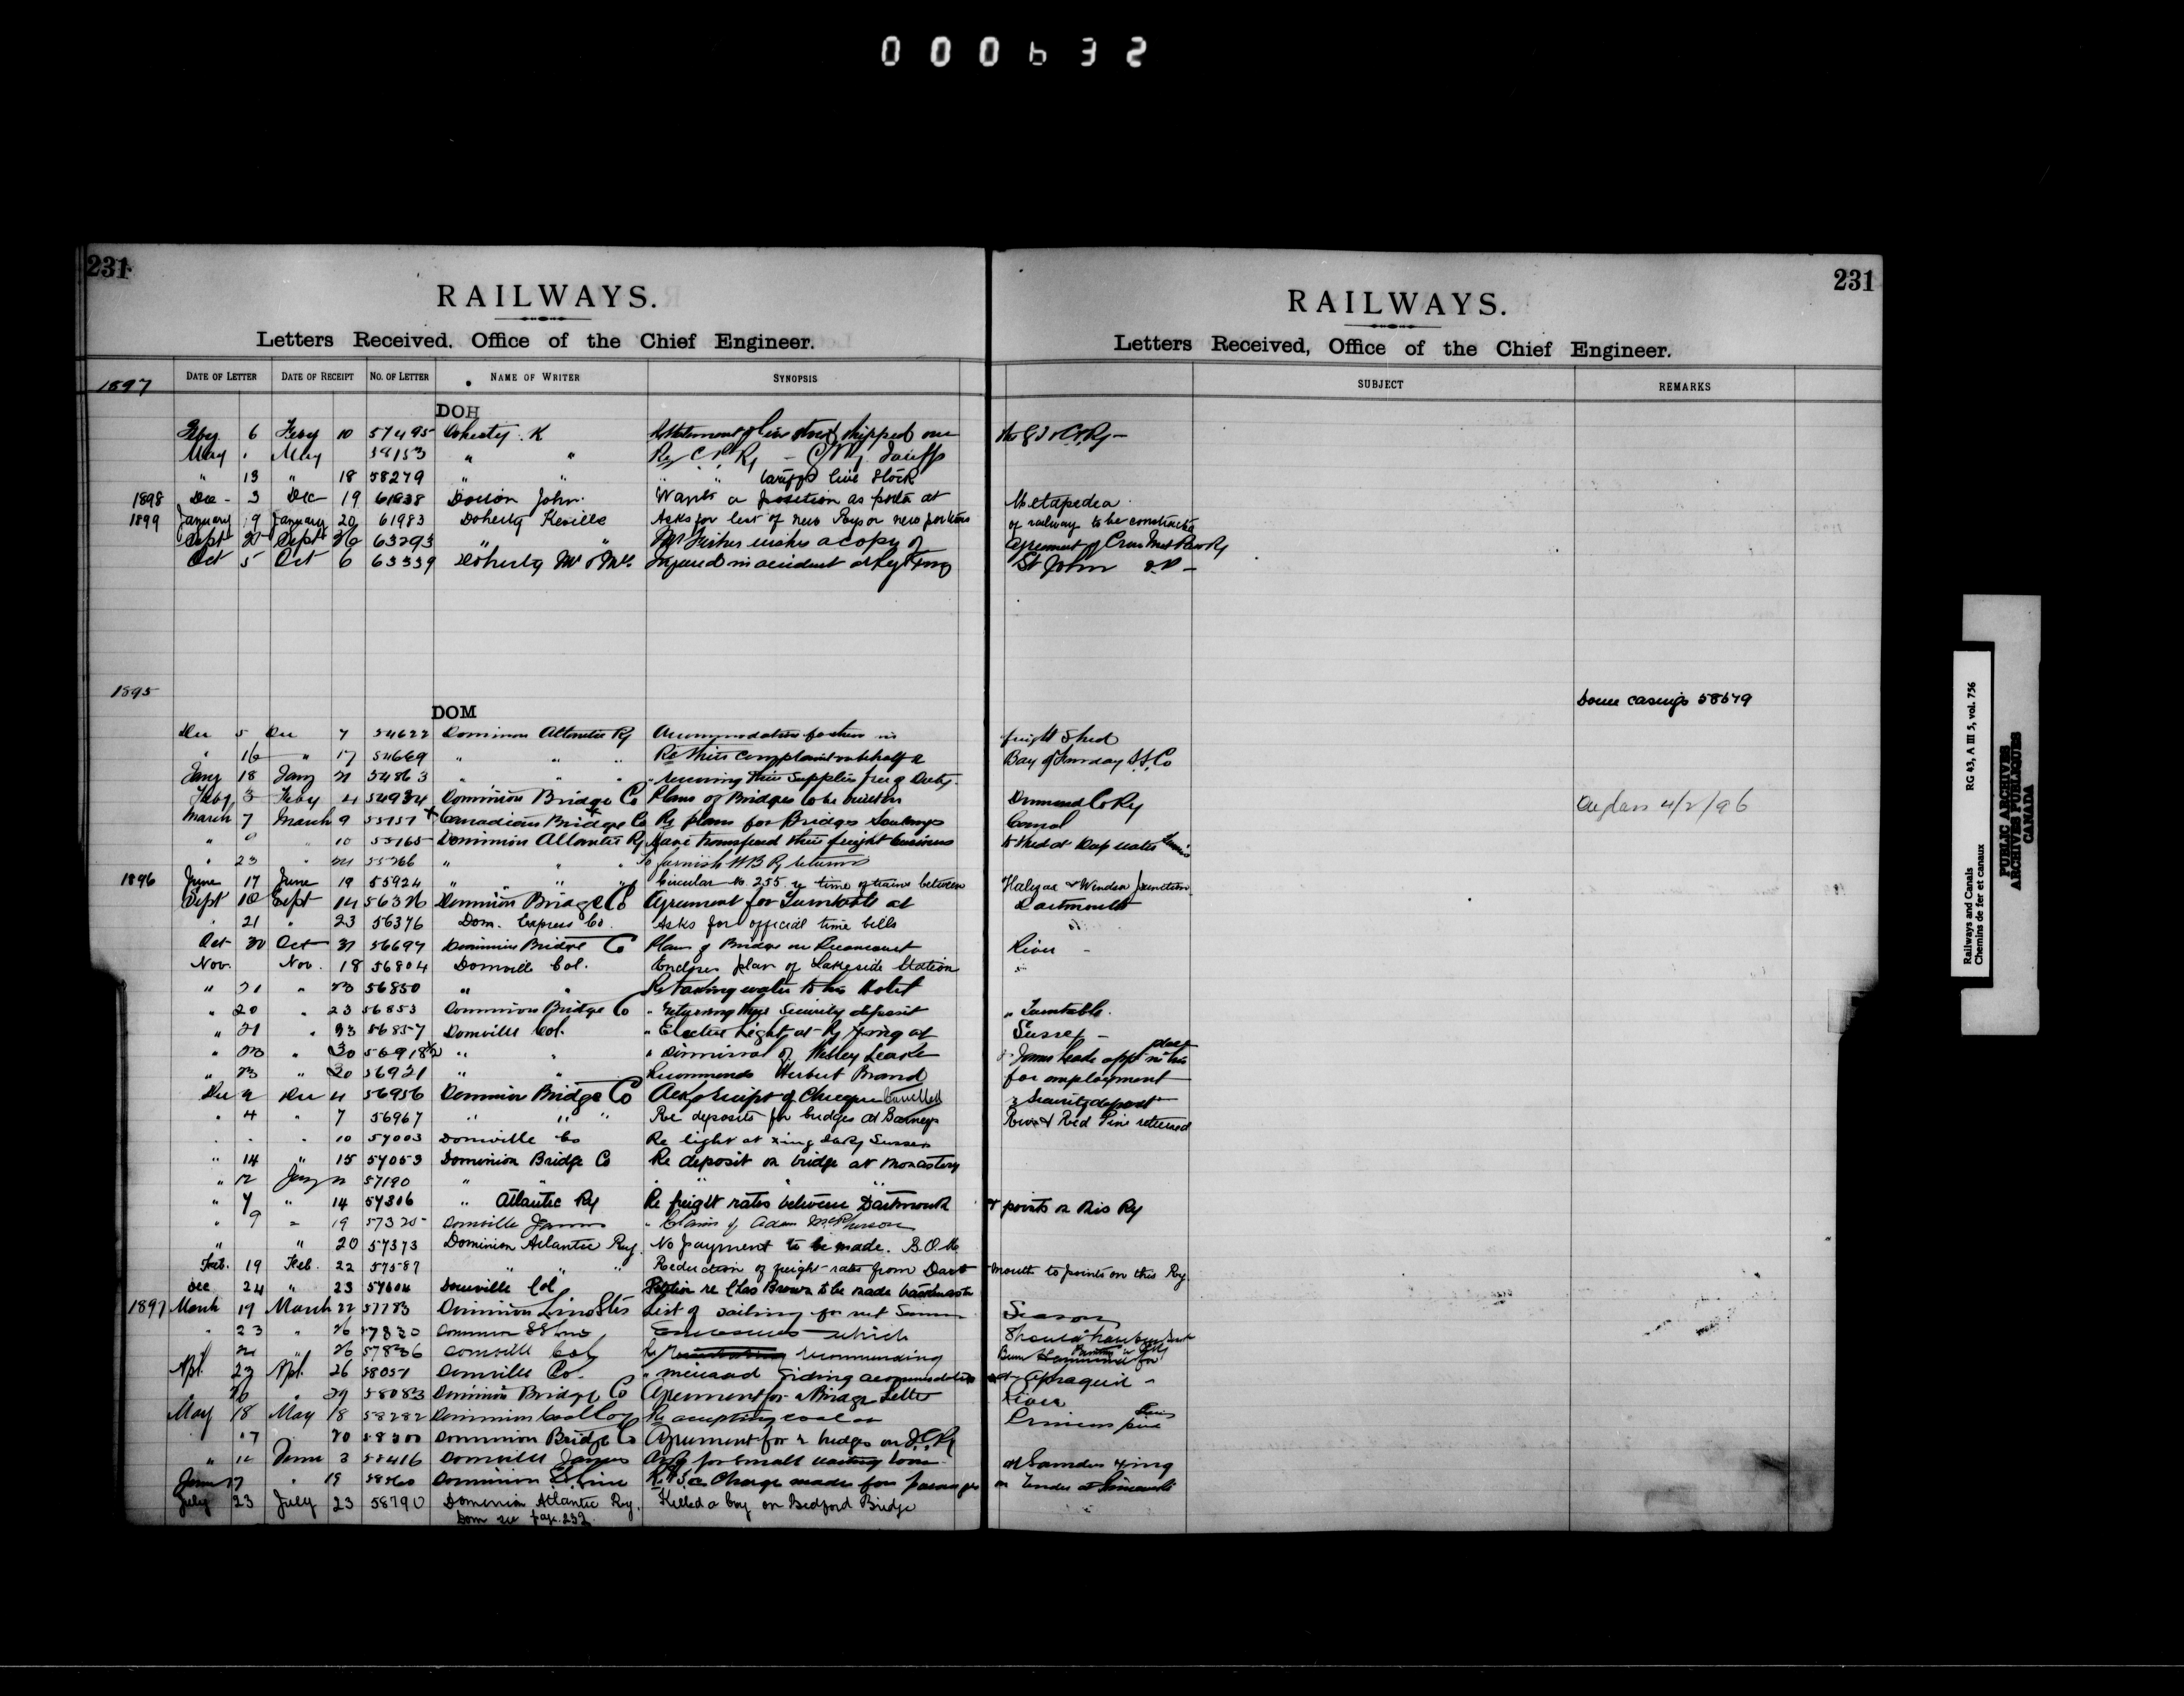 000632
231
RAILWAYS.
Letters Received, Office of the Chief Engineer.
231
RAILWAYS.
Letters Received, Office of the Chief Engineer.
1897 DATE OF LETTER DATE OF RECEIPT NO. OF LETTER NAME OF WRITER SYNOPSIS SUBJECT REMARKS
DOH
Feby 6 Feby 10 57495 Doherty K Statement of live stock shipped over
May May 58153 " " Re C.P. Ry Tariffs
" 13 " 18 58279 " " " " tariffs live Stock
1898 Dec 3 Dec 19 61838 John Wants a position as porter at Metapedia
1899 January 9 January 20 61983 Doherty Keville Asks for list of new Rys or new portions of railway to be constructed
Sept 25 Sept 26 63293 " " Mr Fisher wishes a copy of agreement of
Oct 5 Oct 6 63339 Doherty Mr & Mrs Injured in accident at St John
1895
Some casings 58579
DOM
Dec 5 Dec 7 54622 Dominion Atlantic Ry Accommodation for them in freight shed
" 16 " 17 54669 " " " Re their complaint on behalf of Bay of Fundy S.S. Co
Jany 18 Jany 21 54863 " " " " receiving their supplies free of Duty
Feby 3 Feby 4 54934 Dominion Bridge Co Plans of Bridges to be built on Drummond Co Ry 4/2/96
March 7 March 9 55151 Canadian Bridge Co Re plans for Bridges Soulanges Canal
" 9 " 10 55165 Dominion Atlantic Ry Have transferred their freight business to shed at Deep water
" 23 " 24 55266 " " " To furnish WB Ry returns
1896 June 17 June 19 55924 " " " " Circular No. 255 re time of trains between Halifax & Windsor Junction
Sept 10 Sept 14 56326 Dominion Bridge Co Agreement for Turntable at Dartmouth
" 21 " 23 56376 Dom. Express Co. Asks for official time bills
Oct 30 Oct 31 56697 Dominion Bridge Co Plan of Bridge on River
Nov. Nov. 18 56804 Domville Col. Encloses plan of Lakeside Station
" 21 " 23 56850 " " Re taking water to his Hotel
" 20 " 23 56853 Dominion Bridge Co " returning their Security deposit " Turntable.
" 21 " 23 56857 Domville Col. " Electric Light at Ry Xing at Sussex
" 23 " 30 56918½ " " " Dismissal of Wesley & James app in his place
" 23 " 30 56921 " " Recommends Herbert Brand for employment
Dec 2 Dec 4 56956 Dominion Bridge Co Ack receipt of Cheque Cancelled security deposit
" 4 " 7 56967 " " " Re deposits for bridges at Barneys River & Red Pine returned
" " " 10 57003 Domville Co Re light at xing Sussex
" 14 " 15 57053 Dominion Bridge Co Re deposit on bridge at Monastery
" 12 Jany 2 57190 " " " " "
" 7 " 14 57306 " Atlantic Ry Re freight rates between Dartmouth & points on this Ry
" 9 " 19 57325 Domville James " Claim of Adam McPherson
" " 20 57373 Dominion Atlantic Ry. No payment to be made.
Feb. 19 Feb. 22 57587 " " " Reduction of freight rates from Dartmouth to points on this Ry.
Dec 24 " 23 57604 Domville Col Petition re Chas Brown to be made
1897 March 19 March 22 57783 Dominion Line Strs List of sailing for Season
" 23 " 26 57830 Dominion SS Line Enclosures which should have been
" 24 " 26 57836 Domville Col Re recommending
Apl. 23 Apl. 26 58051 Domville Co. " siding accommodation at Apohaqui
" 26 " 29 58083 Dominion Bridge Co Agreement for River
May 18 May 18 58282 Dominion Coal Coy Re accepting coal
" 17 20 58300 Dominion Bridge Co Agreement for 2 bridges on I.C. Ry
" 12 June 3 58416 Domville James Asks for small waiting room at Xing
June 17 " 19 58560 Dominion SS Line Charge made for passengers on Tender at
July 23 July 23 58790 Dominion Atlantic Ry. Killed a boy on Bedford Bridge
Dom see page 232.
Railways and Canals RG 43, A III 5, vol. 756
Chemins de fer et canaux
PUBLIC ARCHIVES
ARCHIVES PUBLIQUES
CANADA